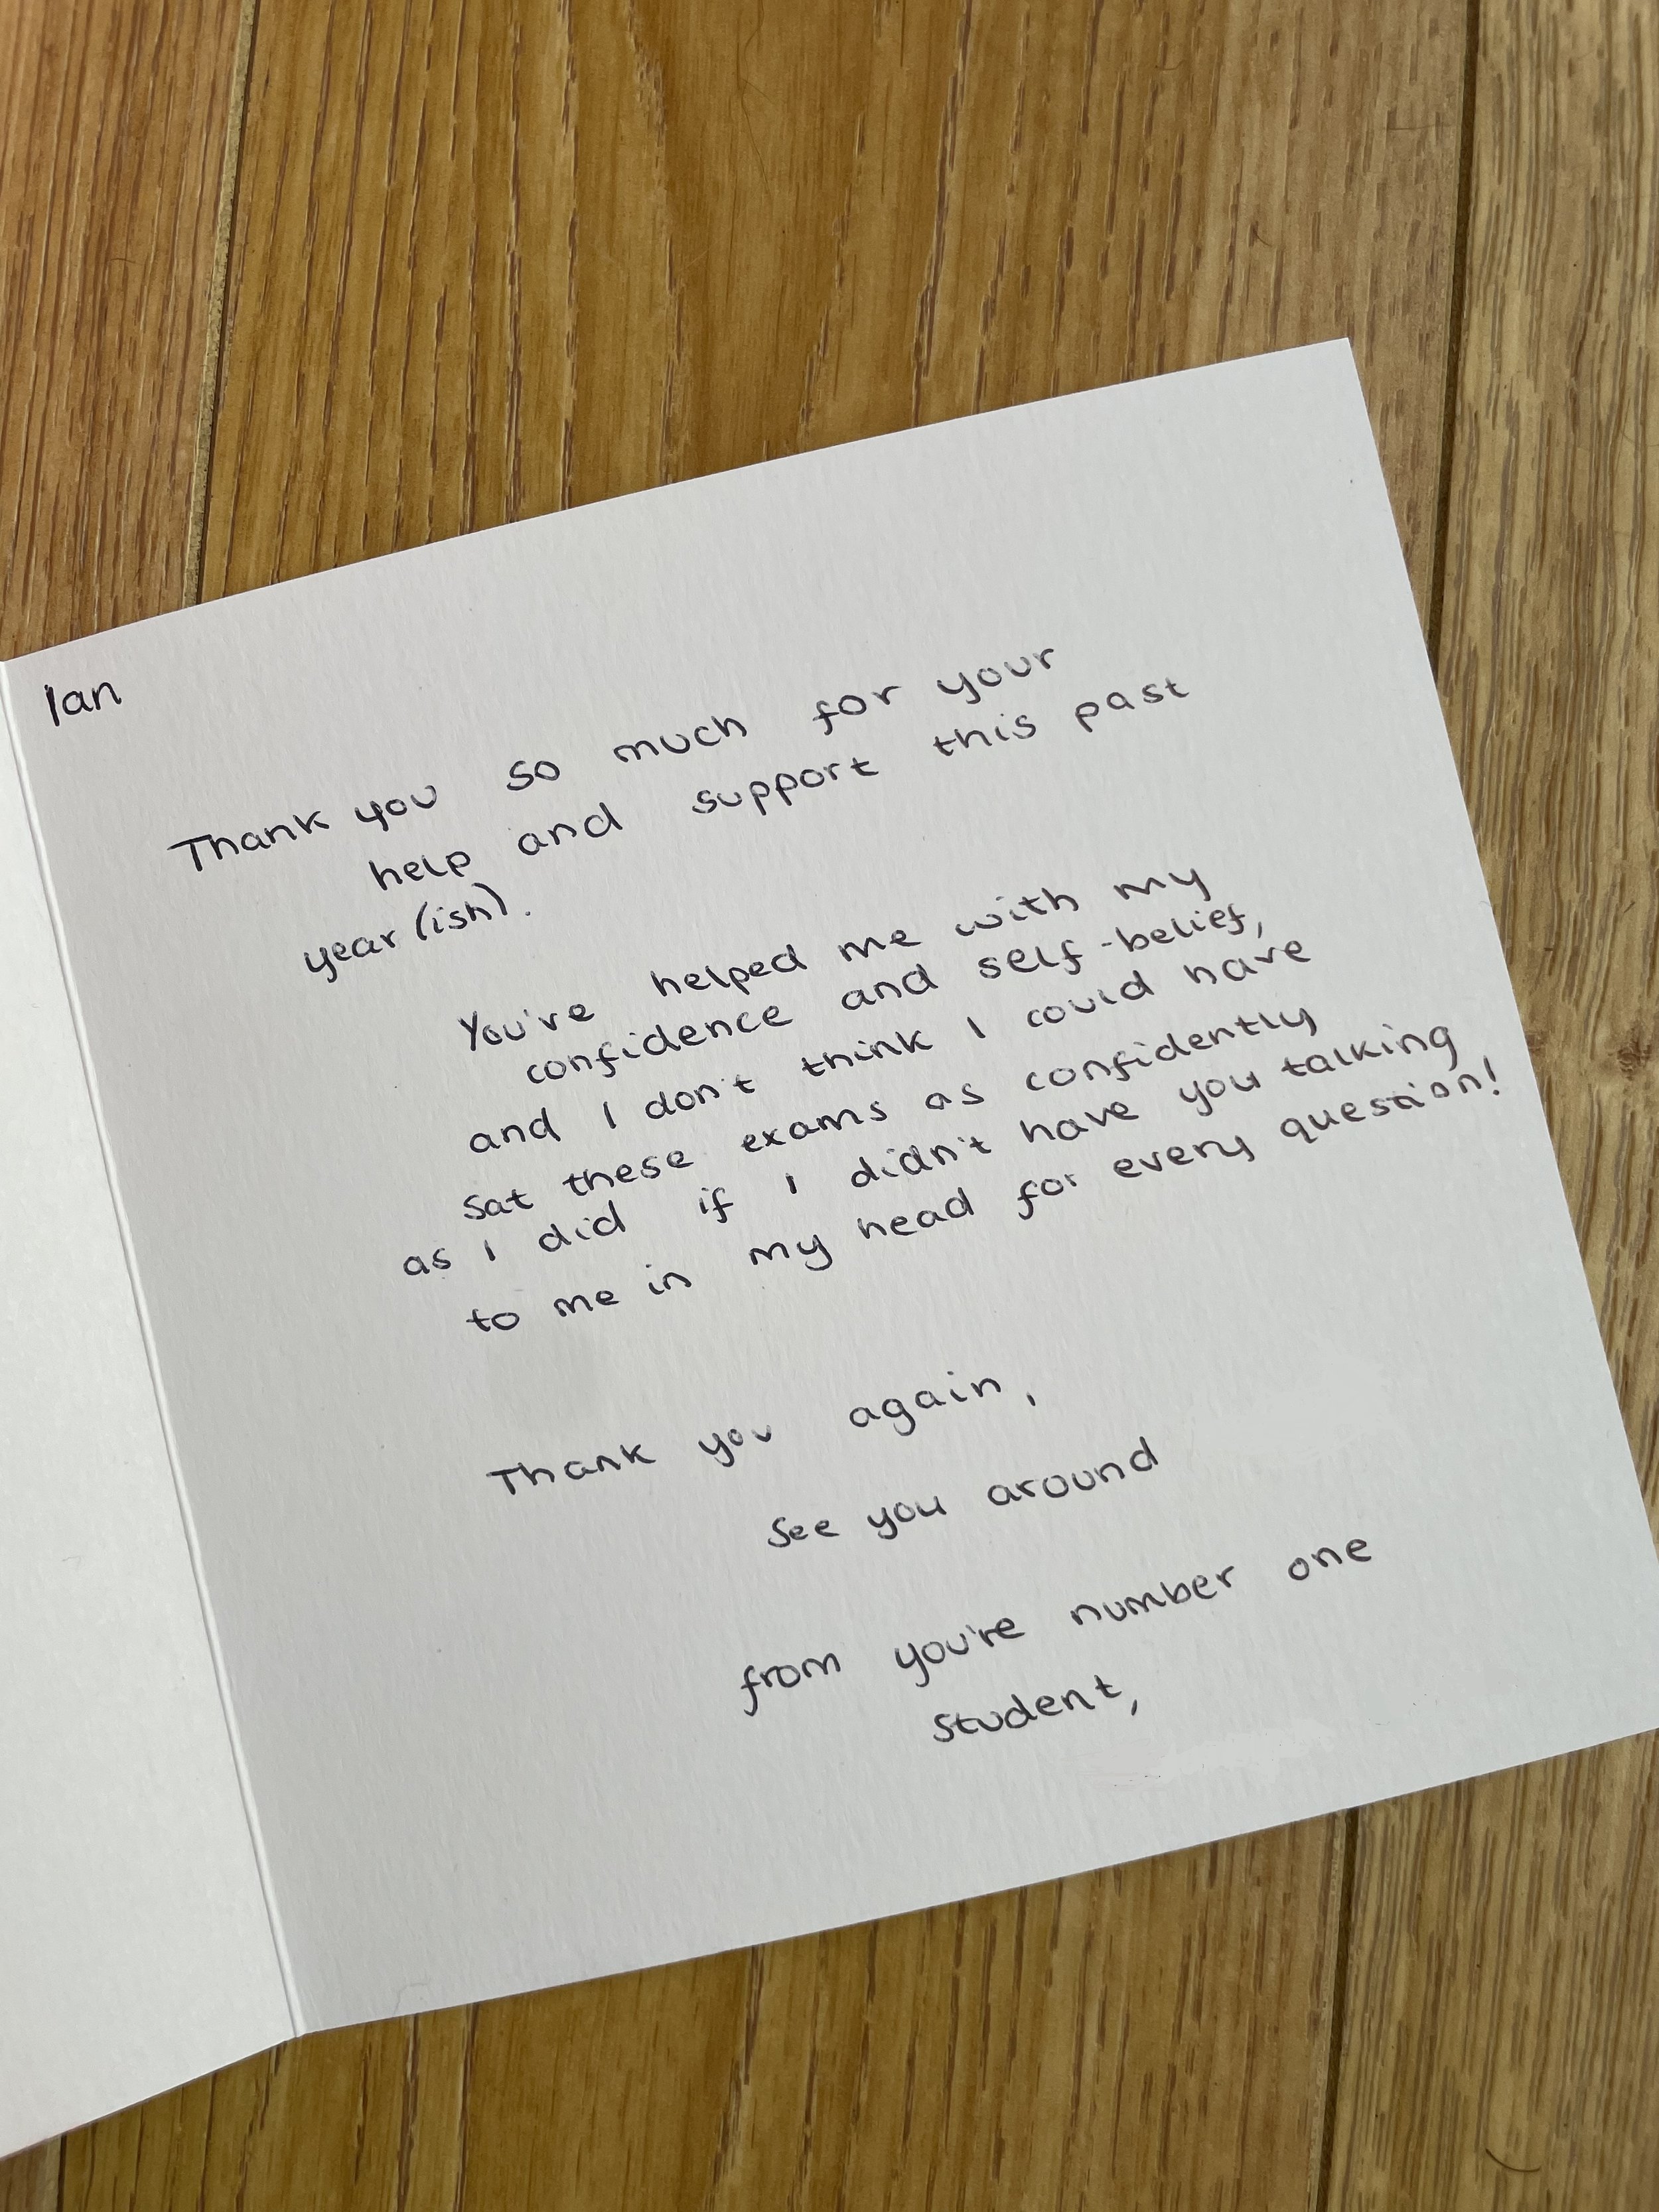 Ian
Thank you so much for your
help and support this past
year (ish).
You've helped me with my
confidence and self-belief,
and I don't think I could have
sat these exams as confidently
as I did if I didn't have you talking
to me in my head for every question!
Thank you again,
See you around
from you're number one
student,